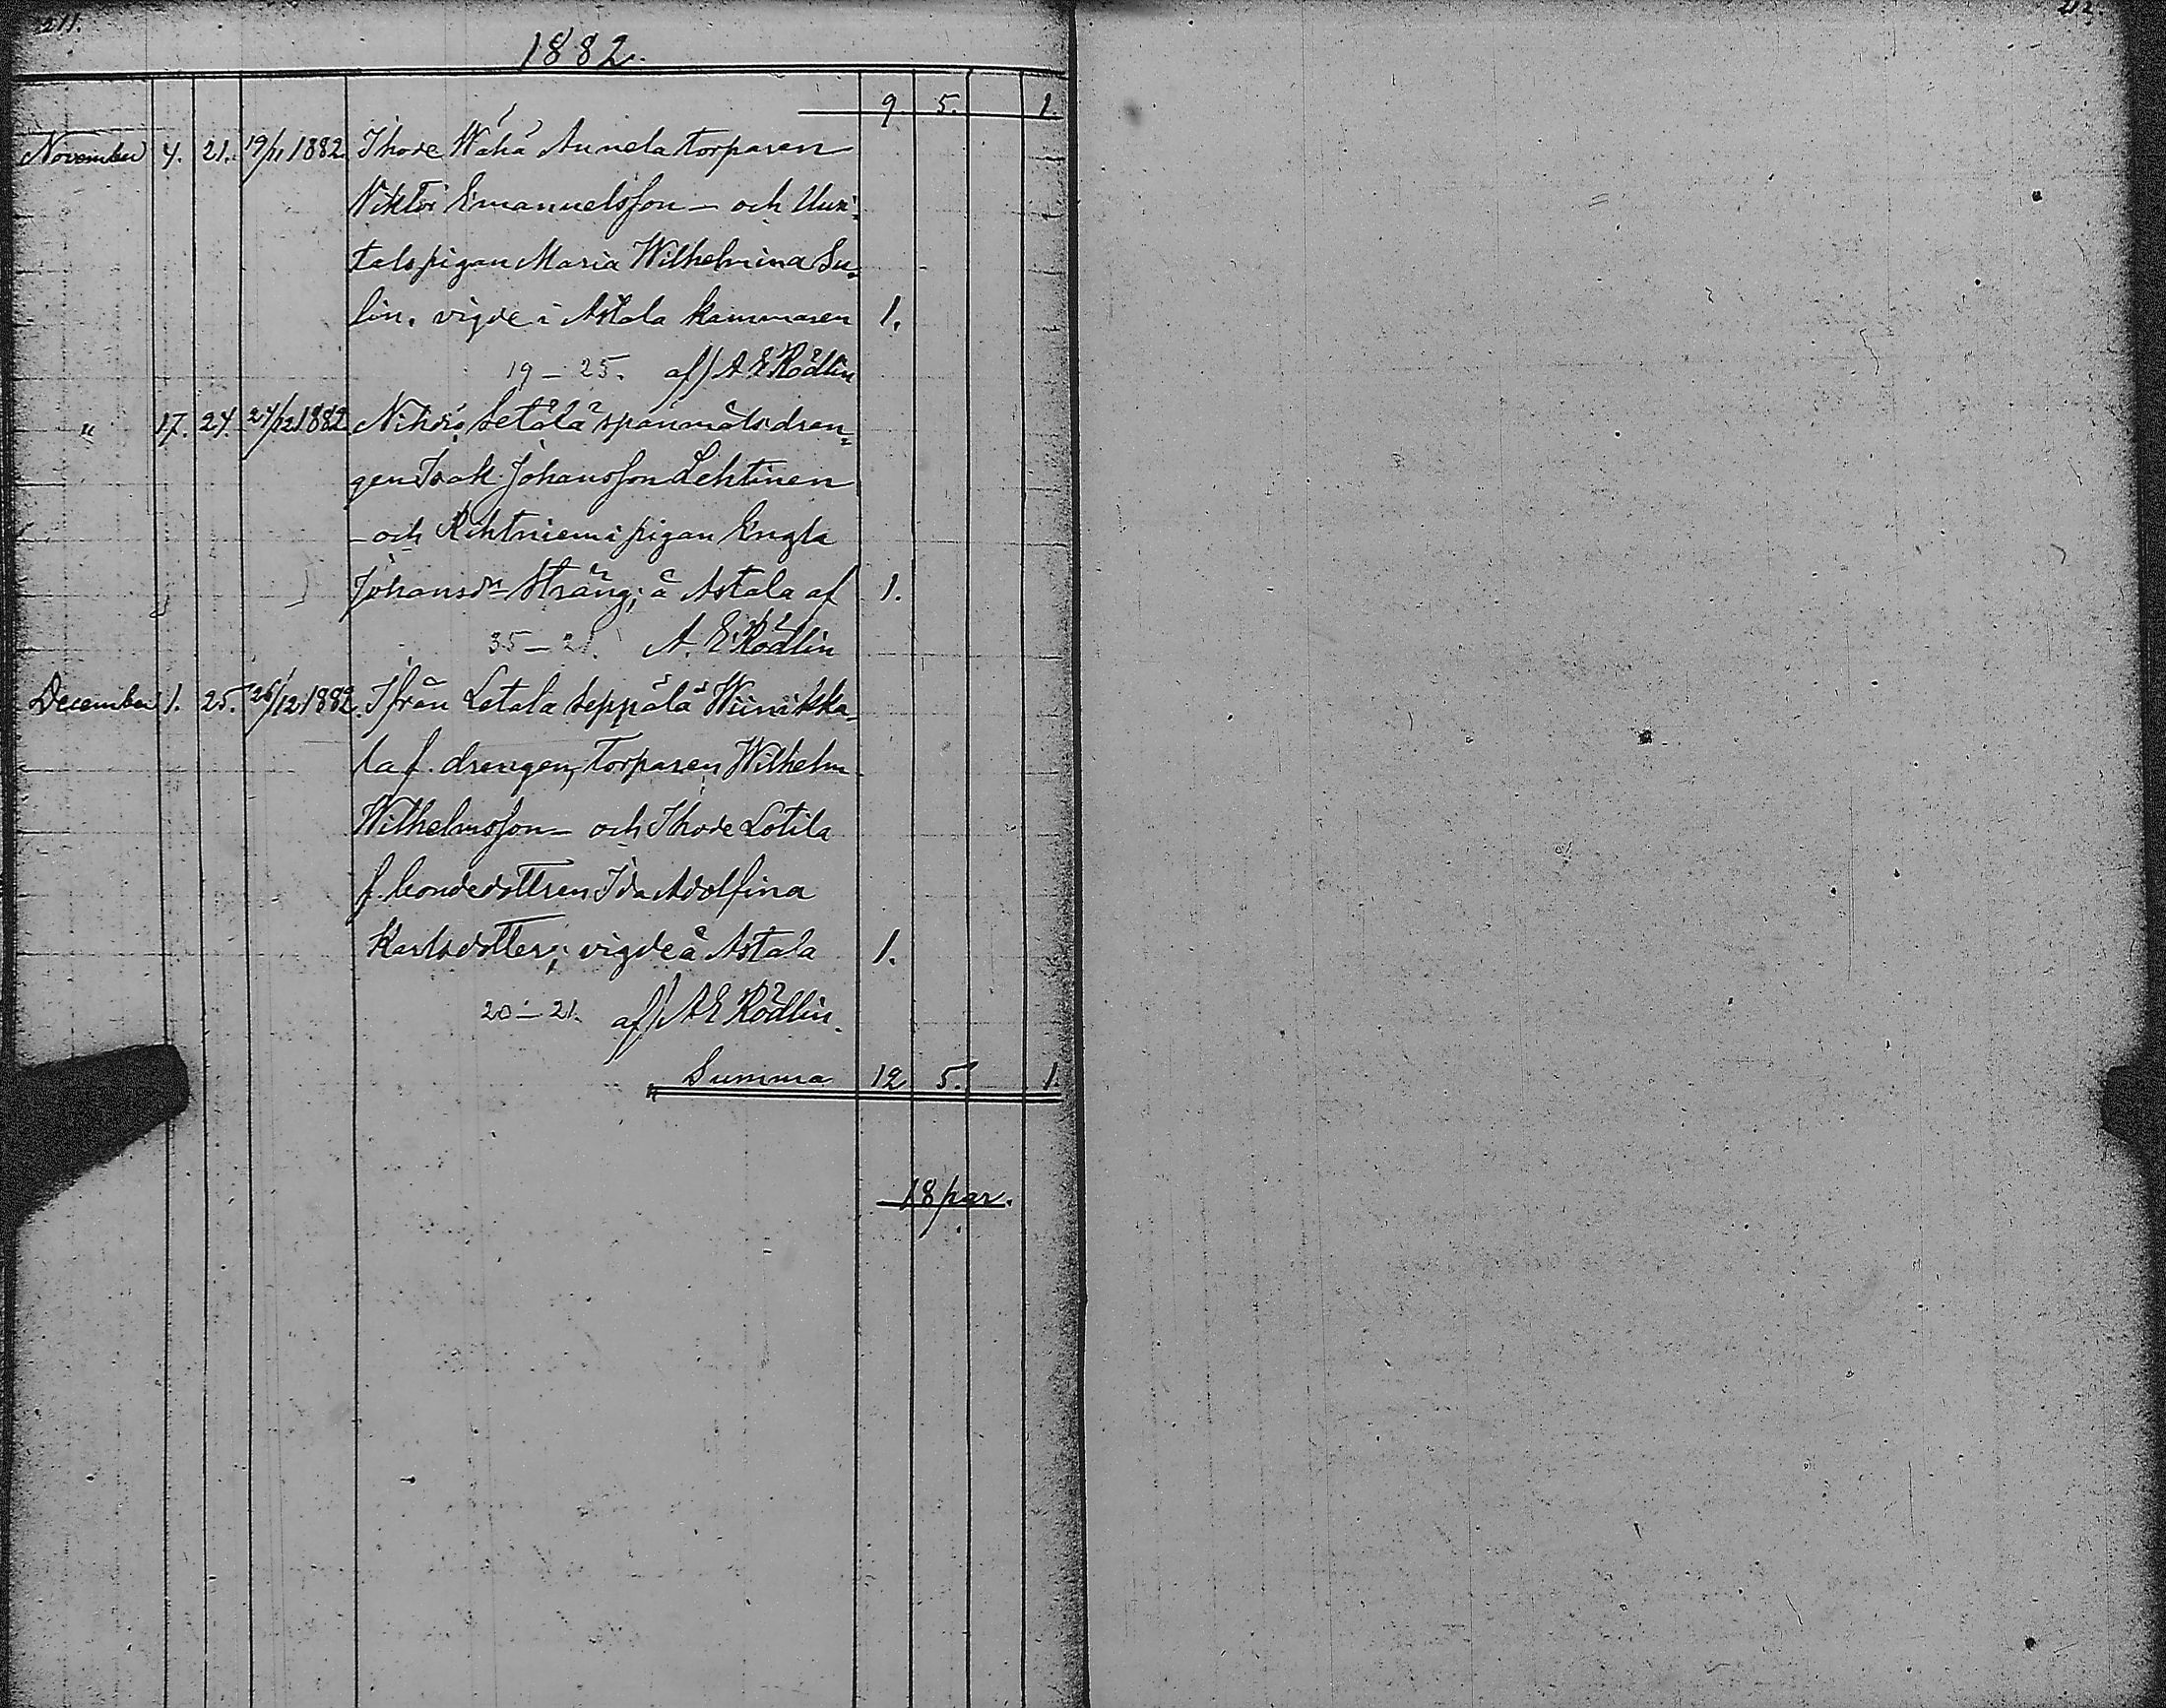 211.
212.
1882.
9. 5. 1.
November 4. 21. 19/11 1882. Ihode Wähä Annela torparen
Viktor Emanuelsson – och Uusi-
talo pigan Maria Wilhelmina Su-
lin, vigde i Astala kammaren 1.
19 – 25. af/ A E Rödlin
" 17. 24. 24/12 1882 Nihiö Setälä spanmålsdren-
gen Isak Johansson Lehtinen
– och Rihtniemi pigan Engla
Johansdr Sträng; å Astala af 1.
35 – 21. A. E Rödlin
December 1. 25. 26/12 1882. Ifrån Letala Seppälä Wiinikka-
la f. drengen, torparen Wilhelm
Wilhelmsson – och Ihode Lötila
f. bondedottren Ida Adolfina
Karlsdotter; vigde å Astala 1.
20 – 21. af/ A E Rödlin.
Summa 12 5. 1.
18 par.